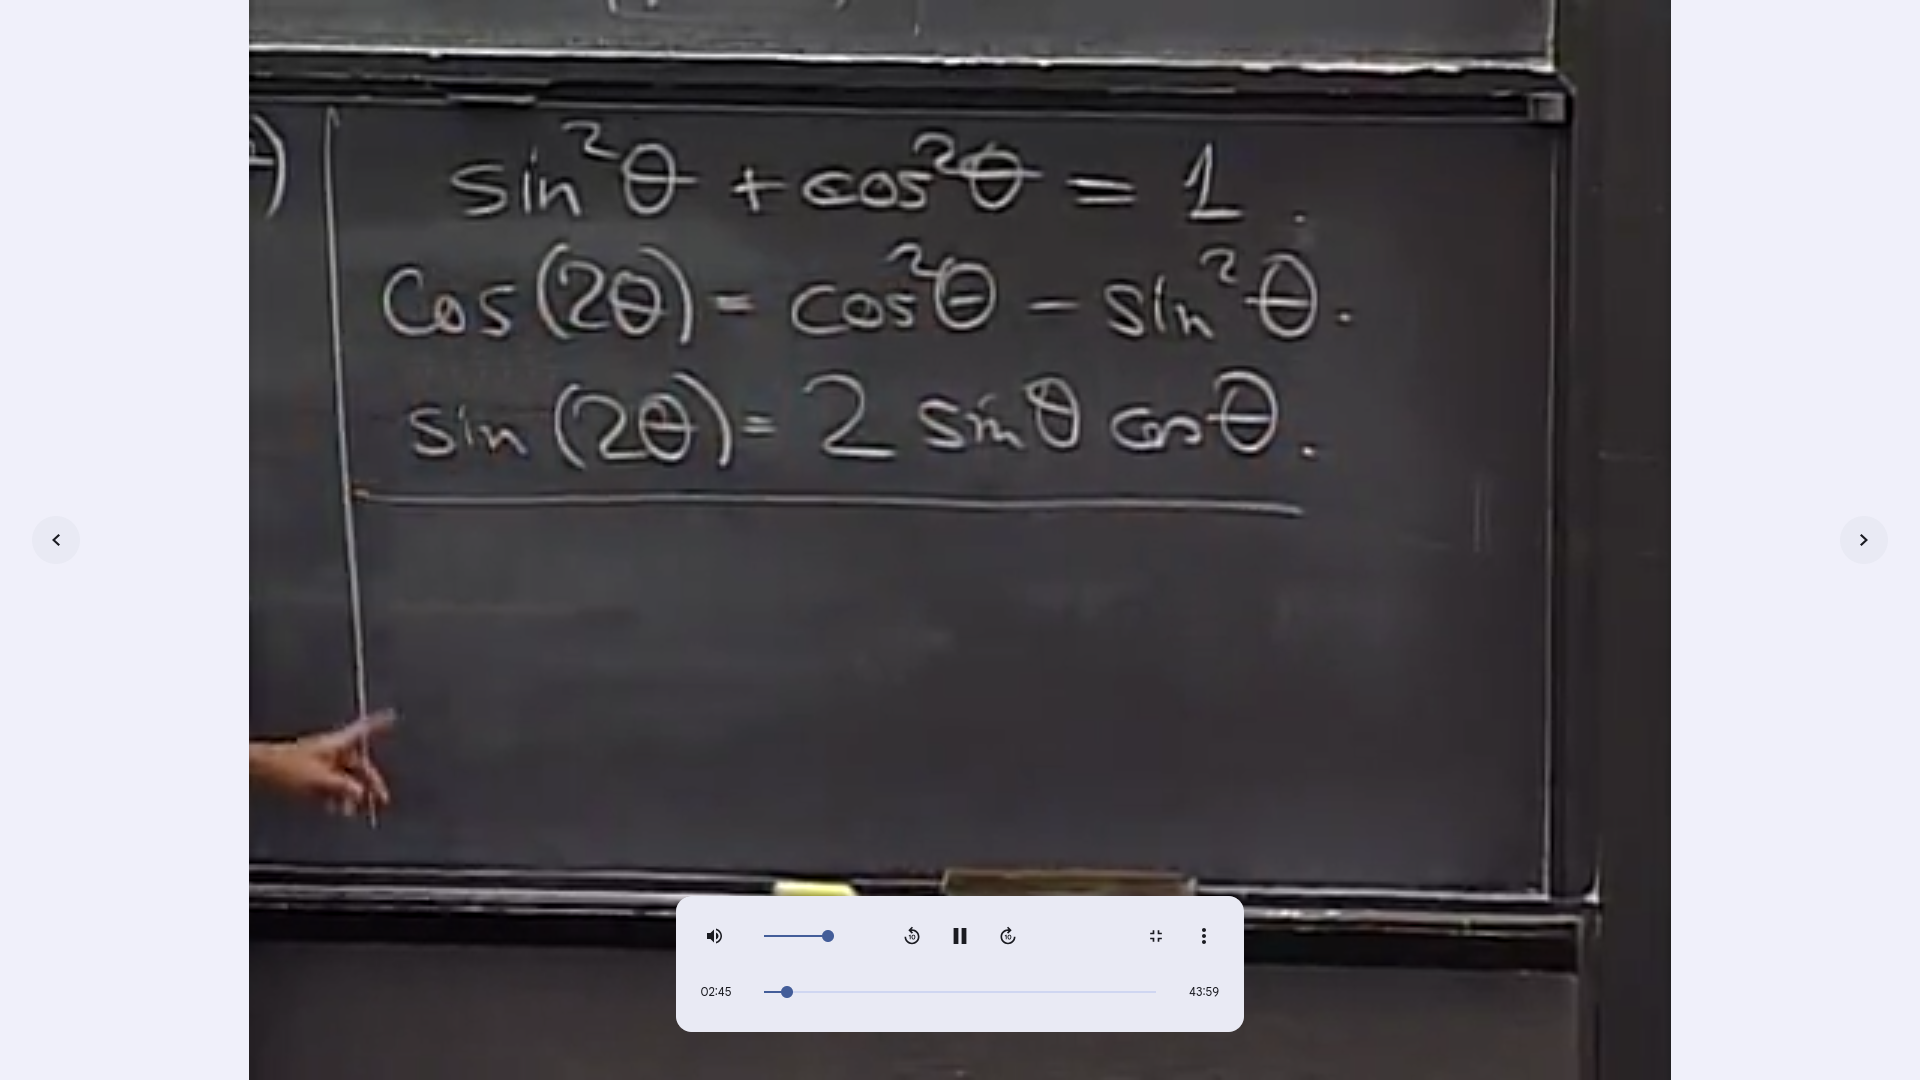 sin²θ + cos²θ = 1.
cos(2θ) = cos²θ - sin²θ.
sin(2θ) = 2 sinθ cosθ.
10 10
02:45 43:59